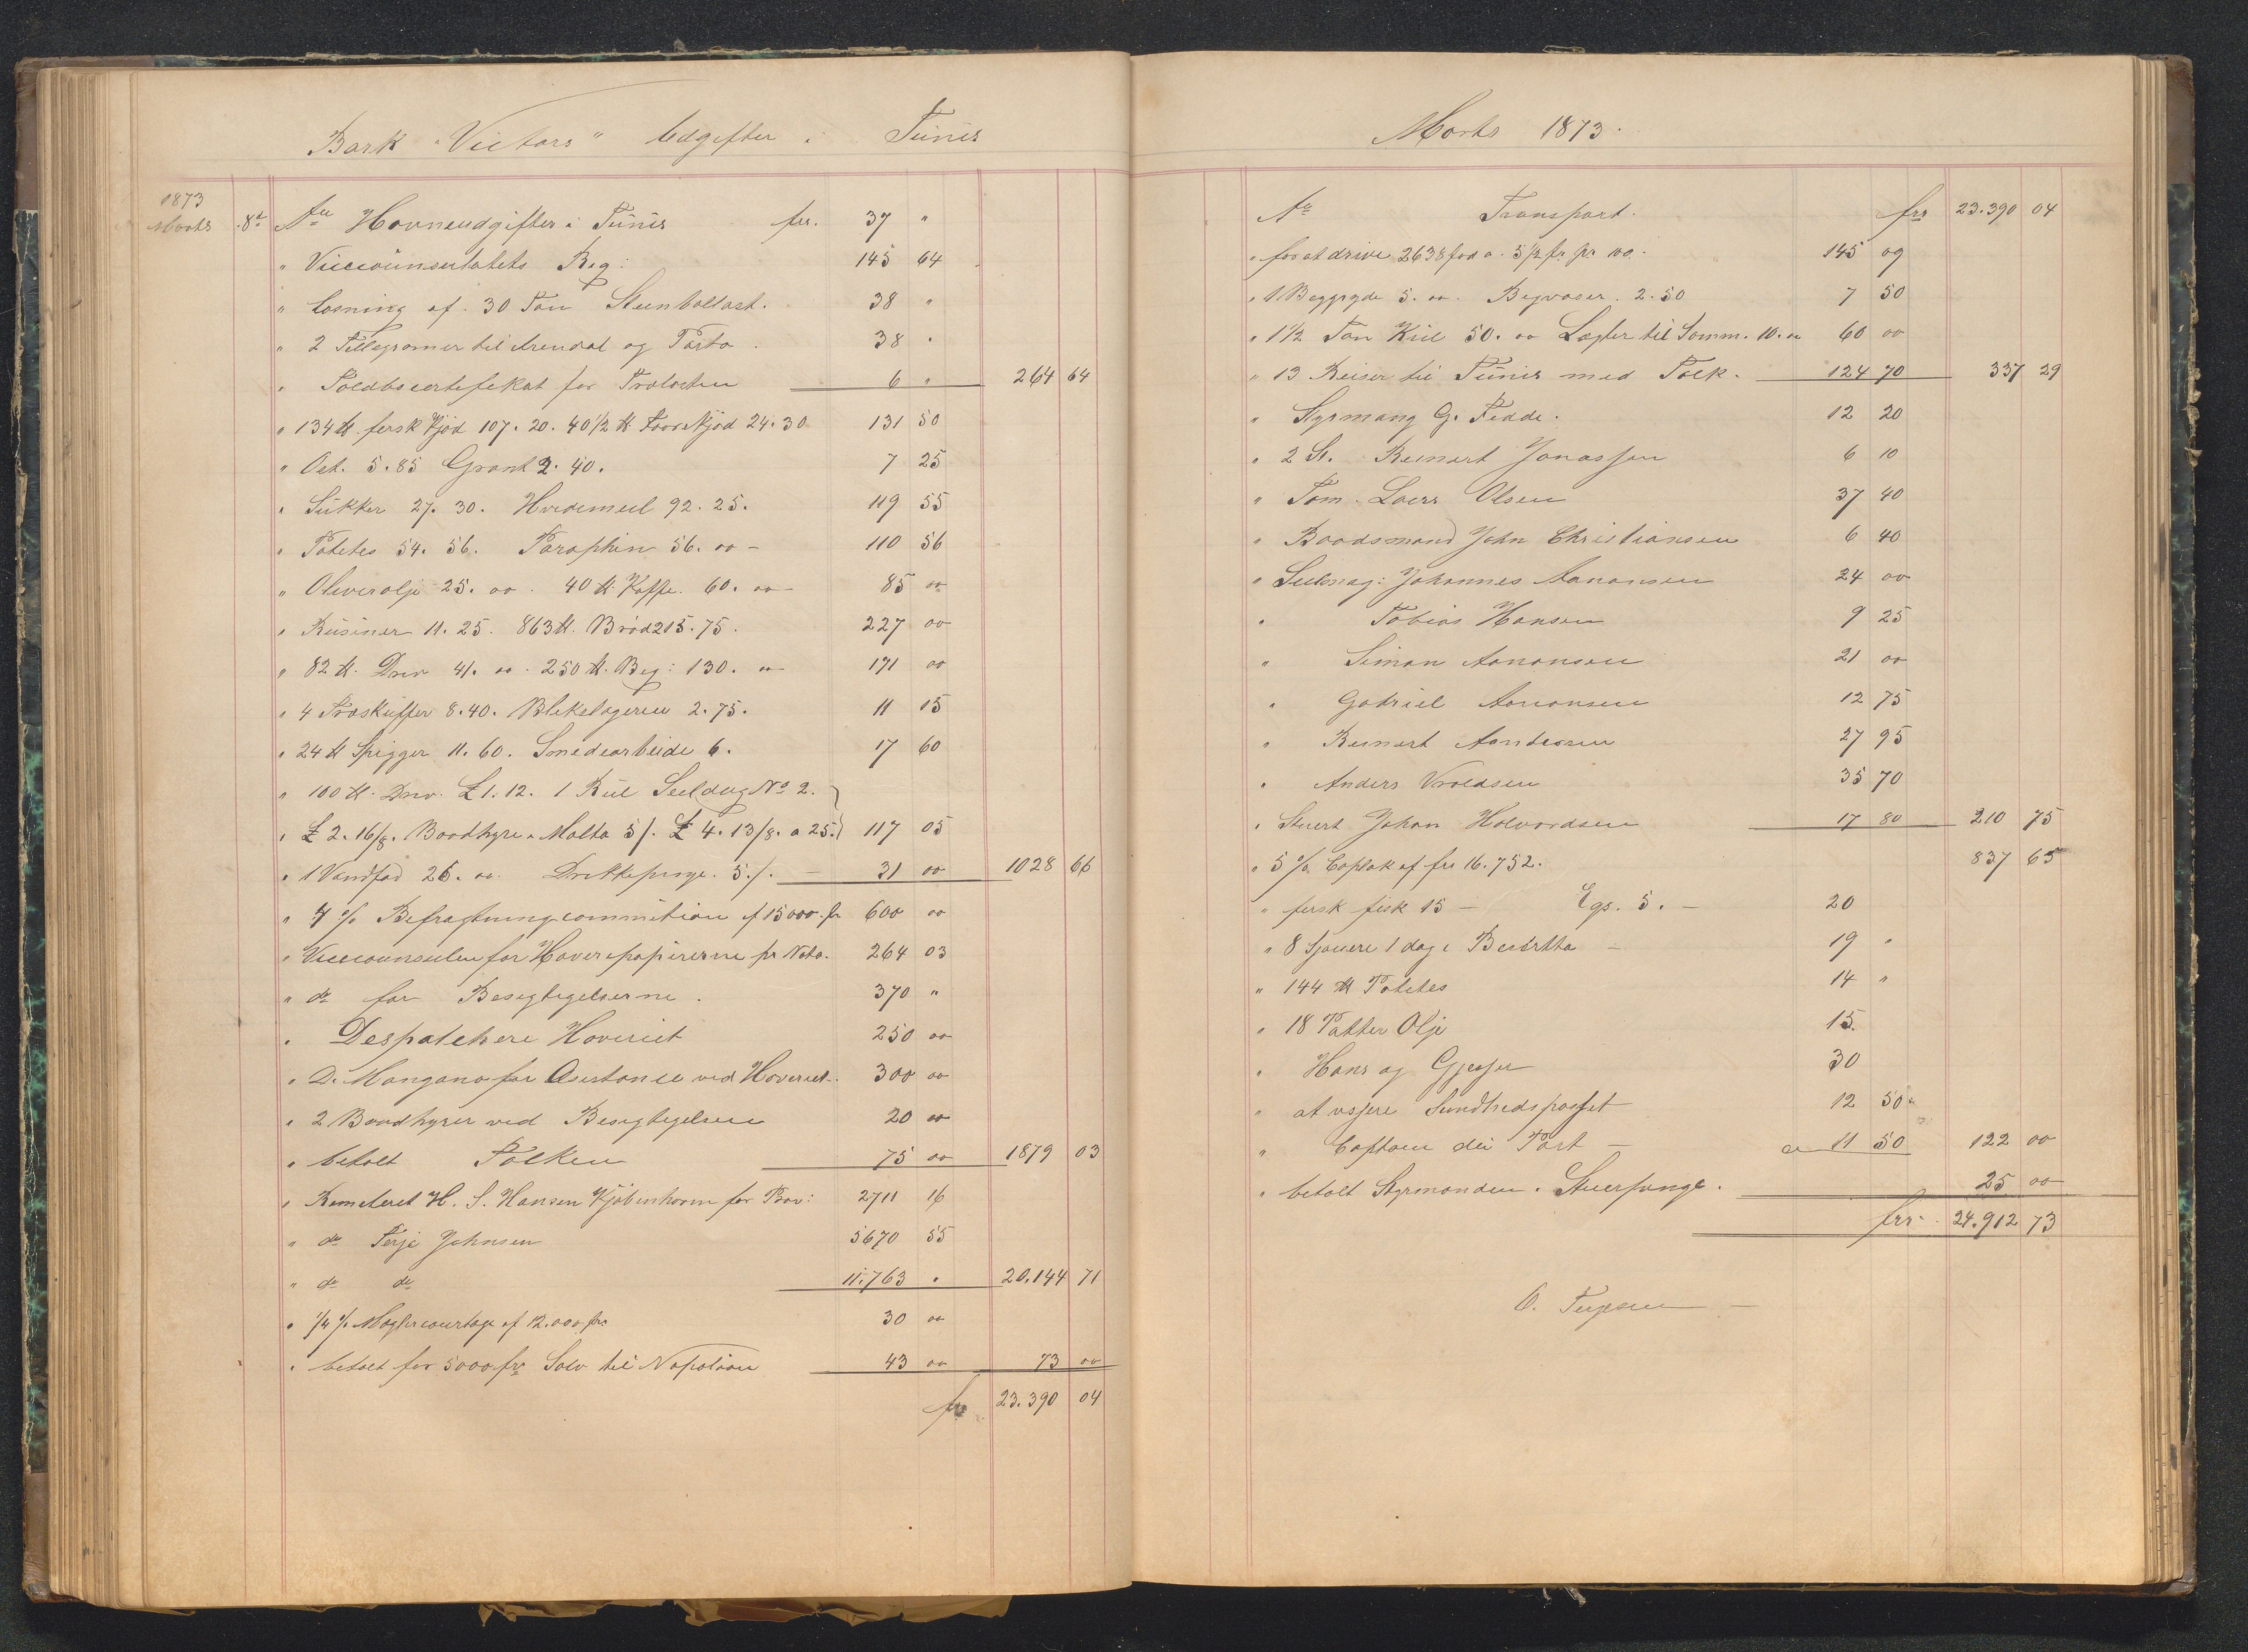 Bark "Victors" Udgifter i Tunis
1873
Marts 8de An Havneudgifter i Tunis frs. 37 "
" Viceconsulatets Reg: 145 64
" Losning af 30 Ton Steenballast. 38 "
" 2 Tellegramer til Arendal og Porto. 38 "
" for 6 " 264 64
" 134 ℔ fersk Kjød 107. 20. 40 1/2 ℔ Faarekjød 24. 30 131 50
" Ost. 5. 85 Grønt 2. 40. 7 25
" Sukker 27. 30. Hvedemeel 92. 25. 119 55
" Potetes 54. 56. Paraphin 56. 00 - 110 56
" Oliverolje 25. 00. 40 ℔ Kaffe. 60. 00 - 85 00
" Rusiner 11. 25. 863 ℔. Brød 215. 75. 227 00
" 82 ℔. Driv 41. 00. 250 ℔. Beg: 130. 00 171 00
" 4 Træskuffer 8. 40. Blikslageren 2. 75. 11 15
" 24 ℔ Spigger 11. 60. Smedearbeide 6. 17 60
" 100 ℔. Driv. £ 1. 12. 1 Rul Seeldug No 2.
" £ 2. 16/8. Baadhyre i Malta 5/. £ 4. 13/8. a 25. 117 05
" 1 Vandfad 26. 00. Drikkepenge. 5./. 31 00 1028 66
" 4 % Befragtningscommition af 15000 fr 600 00
" Viceconsulen for Haveripapirerne pr Nota. 264 03
" do for Besigtigelserne. 370 "
" Despatchere Haveriet 250 00
" D. Mangano for Asistance ved Haveriet. 300 00
" 2 Baadhyrer ved Besigtigelsen 20 00
" betalt Tolken 75 00 1879 03
" Remiteret H. S. Hansen Kjøbenhavn for Prov: 2711 16
" do Terje Johnsen 5670 55
" do do 11.763 " 20.144 71
" 1/4 % Maglercourtage af 12.000 frs 30 00
" betalt for 5000 frs Sølv til Napolion 43 00 73 00
frs 23.390 04
Marts 1873.
An Transport. frs 23.390 04
" for at drive 2638 fod a 5 1/2 fr. pr 100. 145 09
" 1 Beggryde 5. 00. Begvaser. 2. 50 7 50
" 1 1/2 Ton Kul 50. 00 Lægter til Tømm. 10. 00 60 00
" 13 Reiser til Tunis med Tolk. 124 70 337 29
" Styrmand G. Fedde. 12 20
" 2 St. Reinert Jonassen 6 10
" Tøm. Laers Olsen 37 40
" Baadsmand John Christiansen 6 40
" Seilmag: Johannes Aanonsen 24 00
" Tobias Hansen 9 25
" Simon Aanonsen 21 00
" Gabriel Aanonsen 12 75
" Reinert 27 95
" Anders Vroldsen 35 70
" Stuert Johan Halvordsen 17 80 210 75
" 5 % Caplak af frs 16.752. 837 65
" fersk fisk 15 - Egs. 5. - 20
" 8 Sjouere 1 dag i - 19 "
" 144 ℔ Potetes 14 "
" 18 Potter Olje 15.
" Høns og Gjesser 30
" at visjere Sundhedspasset 12 50
" Captain du Port - 11 50 122 00
" betalt Styrmanden i Stuerpenge. 25 00
frs. 24.912 73
O. Terjesen